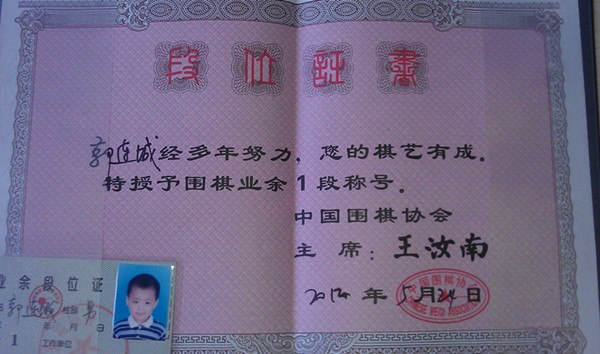 段位证书
郭连城经多年努力，您的棋艺有成。
特授予围棋业余1段称号。
中国围棋协会
主 席：王汝南
年5月24日
中国围棋协会
CHINESE WEIQI ASSOCIATION
业余段位证
郭连城 性别 男
年 月 日
1 工作单位